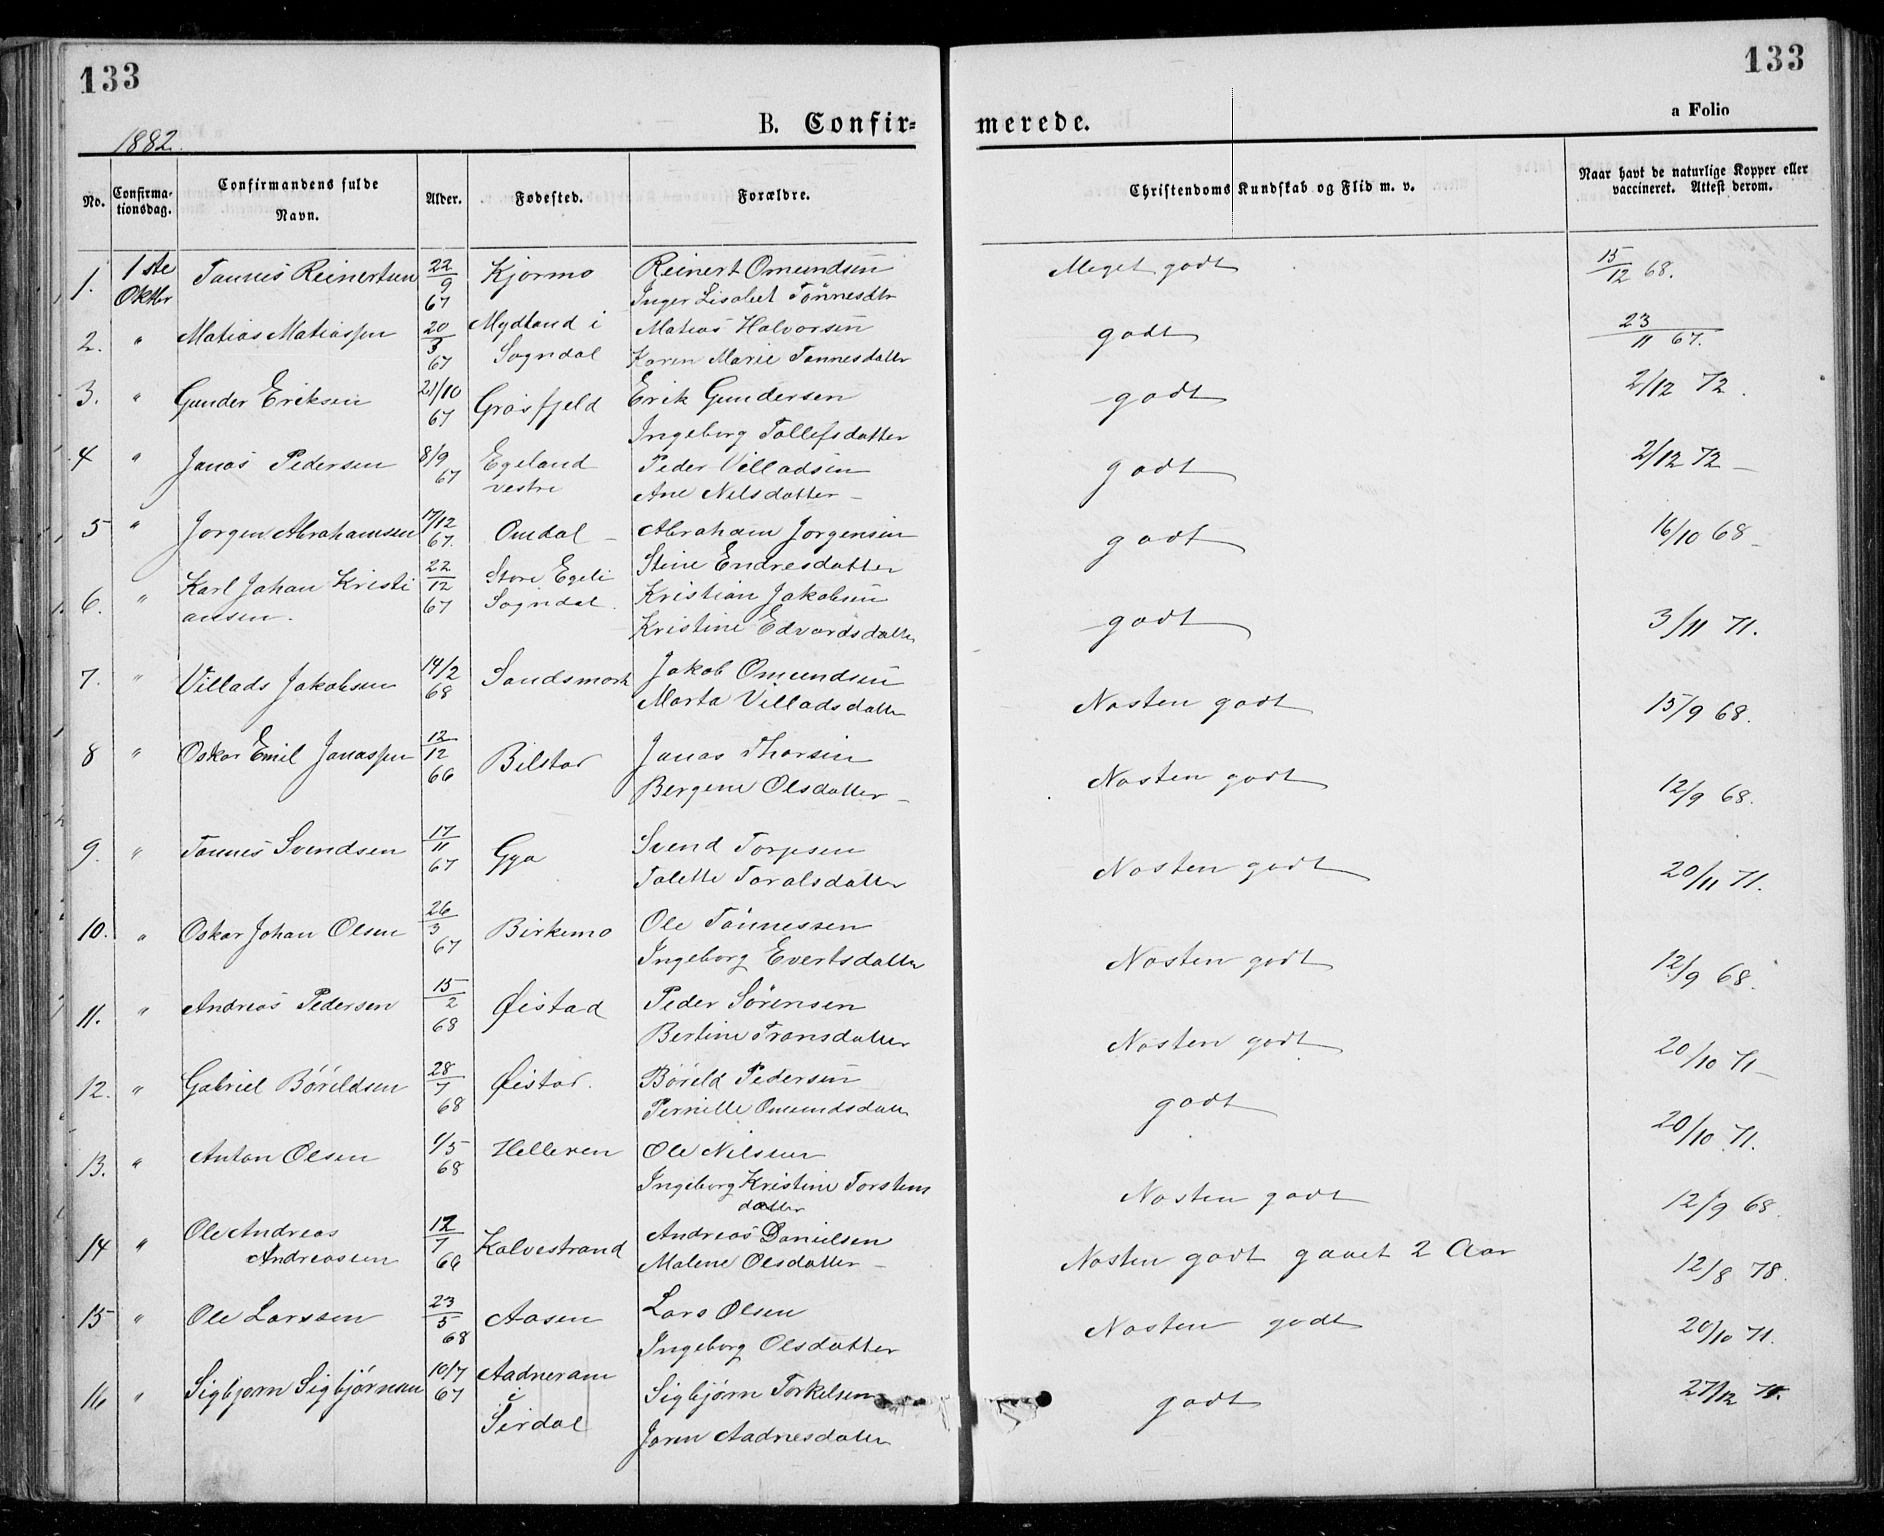 133
133
B. Confir=
merede.
a Folio
1882.
No.
Confirma-
tionsdag.
Confirmandens fulde
Navn.
Alder.
Fødested.
Forældre.
Christendoms Kundskab og Flid m. v.
Naar havt de naturlige Kopper eller
vaccineret. Attest derom.
1. 1ste Tønnes Reinertsen 22/9 Kjørmo Reinert Omundsen Meget godt 15/12 68.
Oktbr 67 Inger Lisabet Tönnesdtr
2. " Matias Matiassen 20/3 Mydland i Matias Halvorsen godt 23/11 67.
67 Sogndal Karen Marie Tønnesdatter
3. " Gunder Eriksen 21/10 Grøsfjeld Erik Gundersen godt 2/12 72.
67 Ingeborg Tollefsdatter
4 " Jonas Pedersen 8/9 Egeland Peder Villadsen godt 2/12 72 –
67 vestre Ane Nilsdatter –
5 " Jørgen Abrahamsen 17/12 Omdal – Abraham Jørgensen godt 16/10 68 –
67. Stine Endresdatter
6. " Karl Johan Kristi 22/12 Store Egeli Kristian Jakobsen godt 3/11 71.
ansen. 67 Sogndal. Kristine Edvardsdatter
7. " Villads Jakobsen 14/2 Sandsmork Jakob Omundsen Næsten godt 15/9 68.
68 Marta Villadsdatter
8 " Oskar Emil Jonassen 12/12 Bilstad Jonas Thorsen Næsten godt 12/9 68.
66 Bergene Olsdatter –
9. " Tønnes Svendsen 17/11 Gya Svend Torjesen Næsten godt 20/11 71.
67 Talette Taralsdatter
10. " Oskar Johan Olsen 26/3 Birkemo Ole Tönnessen Næsten godt 12/9 68.
67 Ingeborg Evertsdatter
11. " Andreas Pedersen 15/2 Øistad Peder Sörensen Næsten godt 20/10 71 –
68 Bertine Fransdatter
12. " Gabriel Börildsen 28/7 Øistad. Böreld Pedersen godt 20/10 71.
68 Pernille Omundsdatter
13. " Anton Olsen 1/5 Helleren Ole Nilsen Næsten godt 12/9 68.
68 Ingeborg Kristine Torstens
datter
14 " Ole Andreas 12/7 Kalvestrand Andreas Danielsen Næsten godt gaaet 2 Aar 12/8 78.
Andreassen 66 Malene Olsdatter –
15 " Ole Larssen 23/5 Aasen Lars Olsen Næsten godt 20/10 71.
68 Ingeborg Olsdatter
16 " Sigbjørn Sigbjörnsen 10/7 Aadneram Sigbjörn Torkelsen godt 27/12 71.
67 i
Sirdal Joren Aadnesdatter